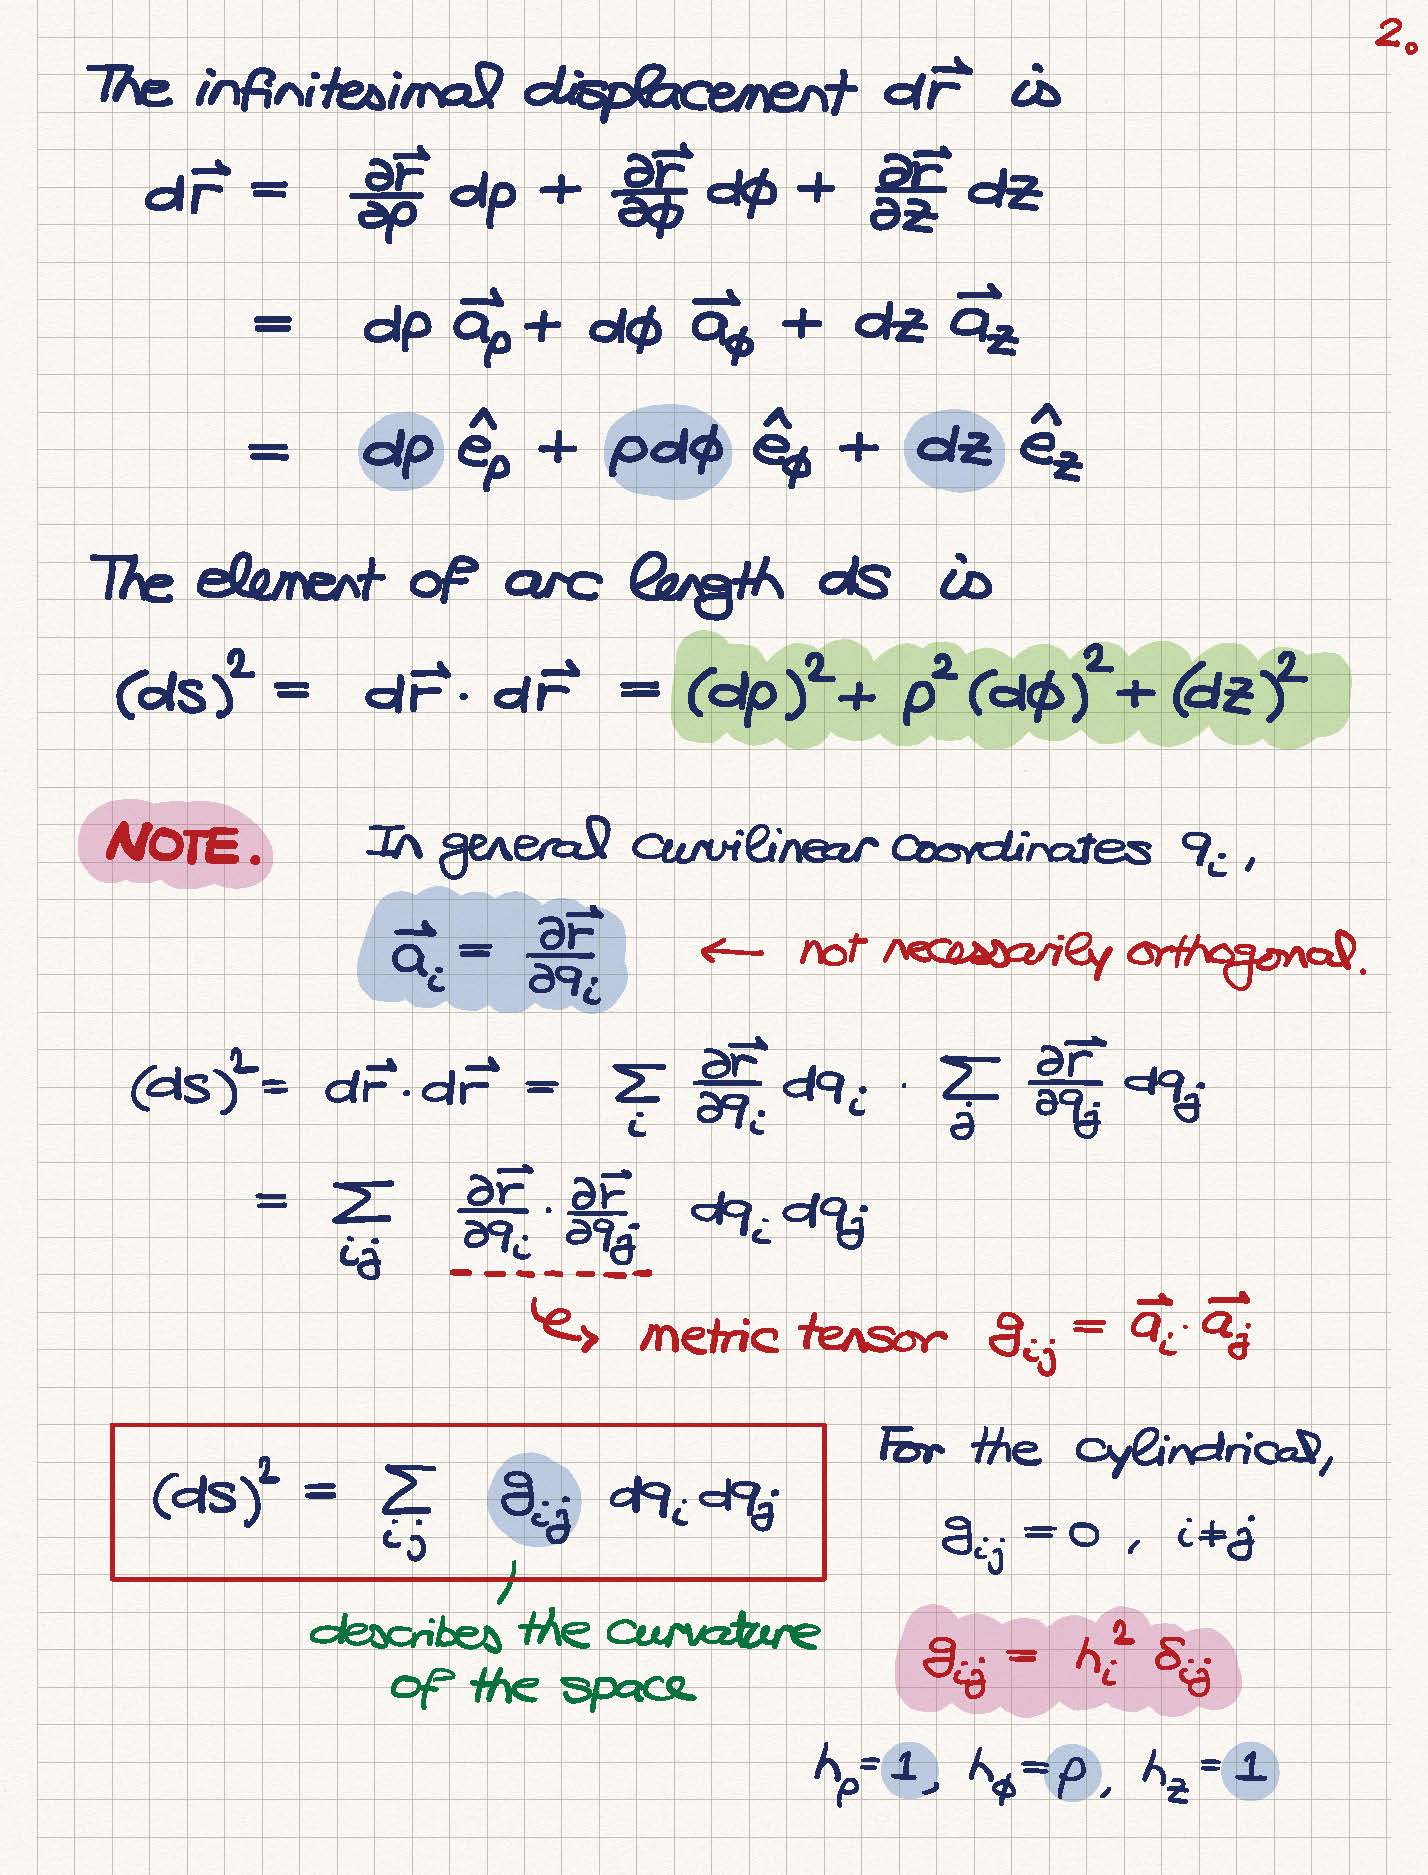 2.
The infinitesimal displacement dr⃗ is
dr⃗ = ∂r⃗/∂ρ dρ + ∂r⃗/∂ϕ dϕ + ∂r⃗/∂z dz
= dρ a⃗_ρ + dϕ a⃗_ϕ + dz a⃗_z
= dρ ê_ρ + ρdϕ ê_ϕ + dz ê_z
The element of arc length ds is
(ds)² = dr⃗ · dr⃗ = (dρ)² + ρ² (dϕ)² + (dz)²
NOTE. In general curvilinear coordinates q_i,
a⃗_i = ∂r⃗/∂q_i ← not necessarily orthogonal.
(ds)² = dr⃗ · dr⃗ = Σ_i ∂r⃗/∂q_i dq_i · Σ_j ∂r⃗/∂q_j dq_j
= Σ_ij ∂r⃗/∂q_i · ∂r⃗/∂q_j dq_i dq_j
↪ metric tensor g_ij = a⃗_i · a⃗_j
(ds)² = Σ_ij g_ij dq_i dq_j
describes the curvature
of the space
For the cylindrical,
g_ij = 0, i ≠ j
g_ij = h_i² δ_ij
h_ρ = 1, h_ϕ = ρ, h_z = 1